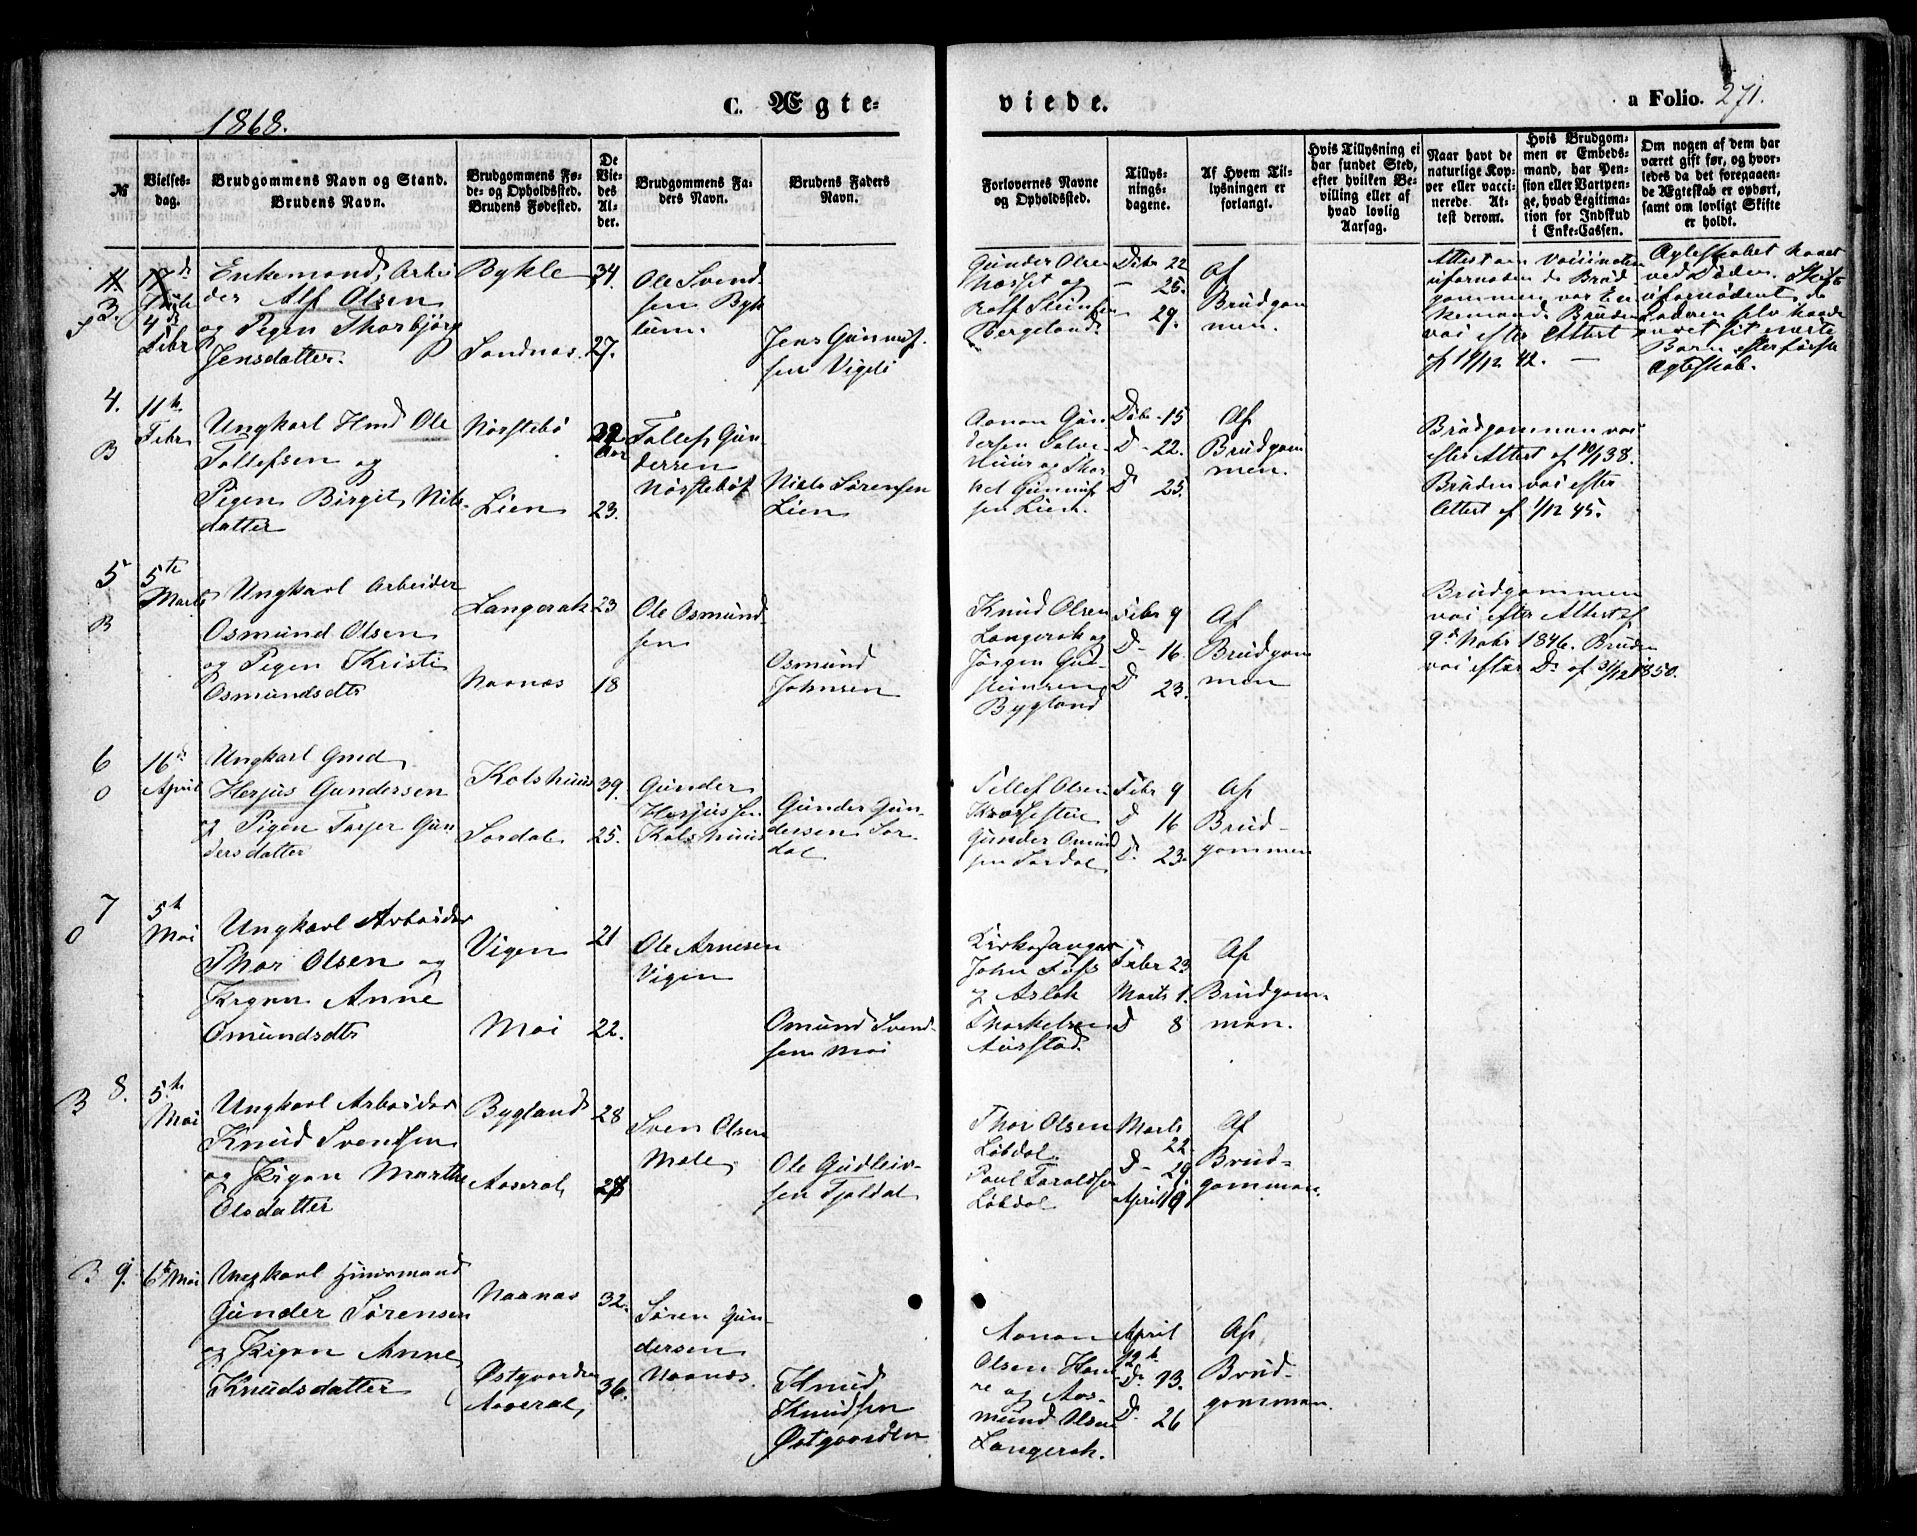 1868.
C. Ægte-
viede.
a Folio. 271.
№
Vielses-
dag.
Brudgommens Navn og Stand.
Brudens Navn.
Brudgommens Fø-
de- og Opholdssted.
Brudens Fødested.
De
Vie-
des
Al-
der.
Brudgommens Fa-
ders Navn.
Brudens Faders
Navn.
Forlovernes Navne
og Opholdssted.
Tillys-
nings-
dagene.
Af Hvem Til-
lysningen er
forlangt.
Hvis Tillysning ei
har fundet Sted,
efter hvilken Be-
villing eller af
hvad lovlig
Aarsag.
Naar havt de
naturlige Kop-
per eller vacci-
nerede At-
test derom.
Hvis Brudgom-
men er Embeds-
mand, har Pen-
sion eller Vartpen-
ge, hvad Legitima-
tion for Indskud
i Enke-Cassen.
Om nogen af dem har
været gift før, og hvor-
ledes da det foregaaen-
de Ægteskab er ophørt,
samt om lovligt Skifte
er holdt.
3.
4de
Febr
Enkemand, Arbei
der Alf Olsen
og Pigen Thorbjørg
Jensdatter.
Bykle
Sandnæs.
34.
27.
Ole Svend
sen Byk
lum.
Jens Gunnuf
sen Vigeli
Gunder Olsen
Næset og
Rolf
Bergeland
Debr 22
26.
29.
Af
Brudgom
men.
Attest om
Brud
gommen var En
kemand. Bruden
vai efter Attest
Ægteskabet hævet
ved Døden. Skift
ufornødent, da
Barn efter første
Ægteskab.
4.
B
11te
Febr
Ungkarl Hmd Ole
Tollefsen og
Pigen Birgit Nils-
datter
Nørstebø
Lien
23.
Tollef Gun
dersen
Nørstebø
Niels Sørensen
Lien
Aanon Gun
dersen
og Thor
Gunnuf
sen Lien.
15
D - 22.
D 25.
Af
Brudgom
men.
Brudgommen vai
efter Attest af 10/1 38.
Bruden vai efter
Attest af 1/12 45.
5
B
5te
Marts
Ungkarl Arbeider
Osmund Olsen
og Pigen Kristi
Osmundsdtr
Langerak
Naanes
23
18
Ole Osmund
sen
Osmund
Johnsen
Knud Olsen
Langerak og
Jørgen Gud
Bygland
Febr 9
D- 16.
D 23.
Af
Brudgom
men
Brudgommen
vai efter Attest af
9de Nobr 1846. Bruden
vai efter Do af 31/12 1850.
6
O
16de
April
Ungkarl Gmd
Herjus Gundersen
og Pigen Tarjer Gun
dersdatter
Kolshuus
Sordal
39.
25.
Gunder
Herjussen
Kolshuus
Gunder Gun-
dersen Sor
dal
Tellef Olsen
Gunder Omund
sen Sordal
Febr 9
D 16
D. 23.
Af
Brud-
gommen
7
O
5te
Mai
Ungkarl Arbeider
Thor Olsen og
Pigen Anne
Omundsdtr
Vigen
Moi
21
22.
Ole Arnesen
Vigen
Omund Svend-
sen Moi
Kirkesanger
John Fuss
og Aslak
Thorkelsen
Austad.
Febr 23
Marts 1.
D 8
Af
Brudgom-
men.
8.
B
5te
Mai
Ungkarl Arbeider
Knud Svendsen
og Pigen Marthe
Olsdatter
Bygland
Aaseral
28
Sven Olsen
Mole
Ole Gudleiv-
sen Fjeldal
Thor Olsen
Løbdal
Poul Taraldsen
Løbdal
Marts
22.
D- 29.
April
Af
Brud-
gommen.
9.
B
6te Mai
Ungkarl Huusmand
Gunder Sørensen
og Pigen Anne
Knudsdatter
Naanes
Østgaarden
Aaseral,
32.
36.
Søren Gun-
dersen
Naanes.
Knud
Knudsen
Østgaarden
Aanon
Olsen
og Aas-
mund Olsen
Langerak.
April
12te
D 26
Af
Brud-
gommen.